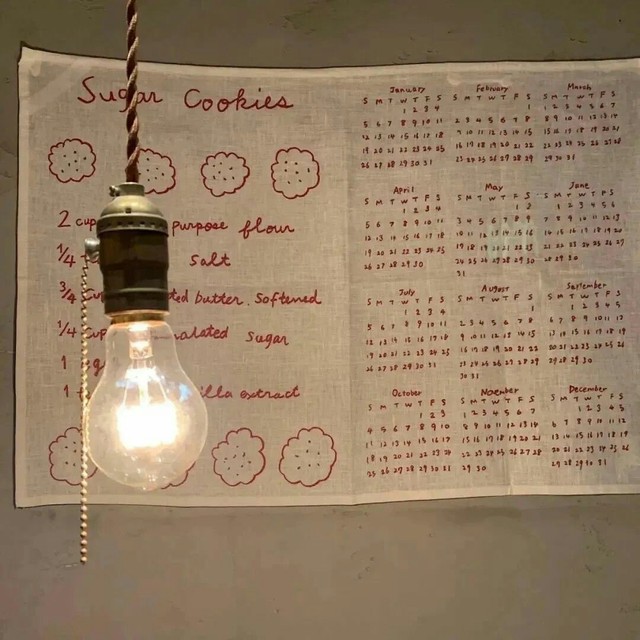 Sugar Cookies
2 cup purpose flour
1/4 salt
3/4 cup ted butter, softened
1/4 cup nulated sugar
1
1 illa extract
January
S M T W T F S
1 2 3 4
5 6 7 8 9 10 11
12 13 14 15 16 17 18
19 20 21 22 23 24 25
26 27 28 29 30 31
February
S M T W T F S
1
2 3 4 5 6 7 8
9 10 11 12 13 14 15
16 17 18 19 20 21 22
23 24 25 26 27 28 29
March
S M T W T F S
1 2 3 4 5 6 7
8 9 10 11 12 13 14
15 16 17 18 19 20 21
22 23 24 25 26 27 28
29 30 31
April
S M T W T F S
1 2 3 4
5 6 7 8 9 10 11
12 13 14 15 16 17 18
19 20 21 22 23 24 25
26 27 28 29 30
May
S M T W T F S
1 2
3 4 5 6 7 8 9
10 11 12 13 14 15 16
17 18 19 20 21 22 23
24 25 26 27 28 29 30
31
June
S M T W T F S
1 2 3 4 5 6
7 8 9 10 11 12 13
14 15 16 17 18 19 20
21 22 23 24 25 26 27
28 29 30
July
S M T W T F S
1 2 3 4
5 6 7 8 9 10 11
12 13 14 15 16 17 18
19 20 21 22 23 24 25
26 27 28 29 30 31
August
S M T W T F S
1
2 3 4 5 6 7 8
9 10 11 12 13 14 15
16 17 18 19 20 21 22
23 24 25 26 27 28 29
30 31
September
S M T W T F S
1 2 3 4 5
6 7 8 9 10 11 12
13 14 15 16 17 18 19
20 21 22 23 24 25 26
27 28 29 30
October
S M T W T F S
1 2 3
4 5 6 7 8 9 10
11 12 13 14 15 16 17
18 19 20 21 22 23 24
25 26 27 28 29 30 31
November
S M T W T F S
1 2 3 4 5 6 7
8 9 10 11 12 13 14
15 16 17 18 19 20 21
22 23 24 25 26 27 28
29 30
December
S M T W T F S
1 2 3 4 5
6 7 8 9 10 11 12
13 14 15 16 17 18 19
20 21 22 23 24 25 26
27 28 29 30 31